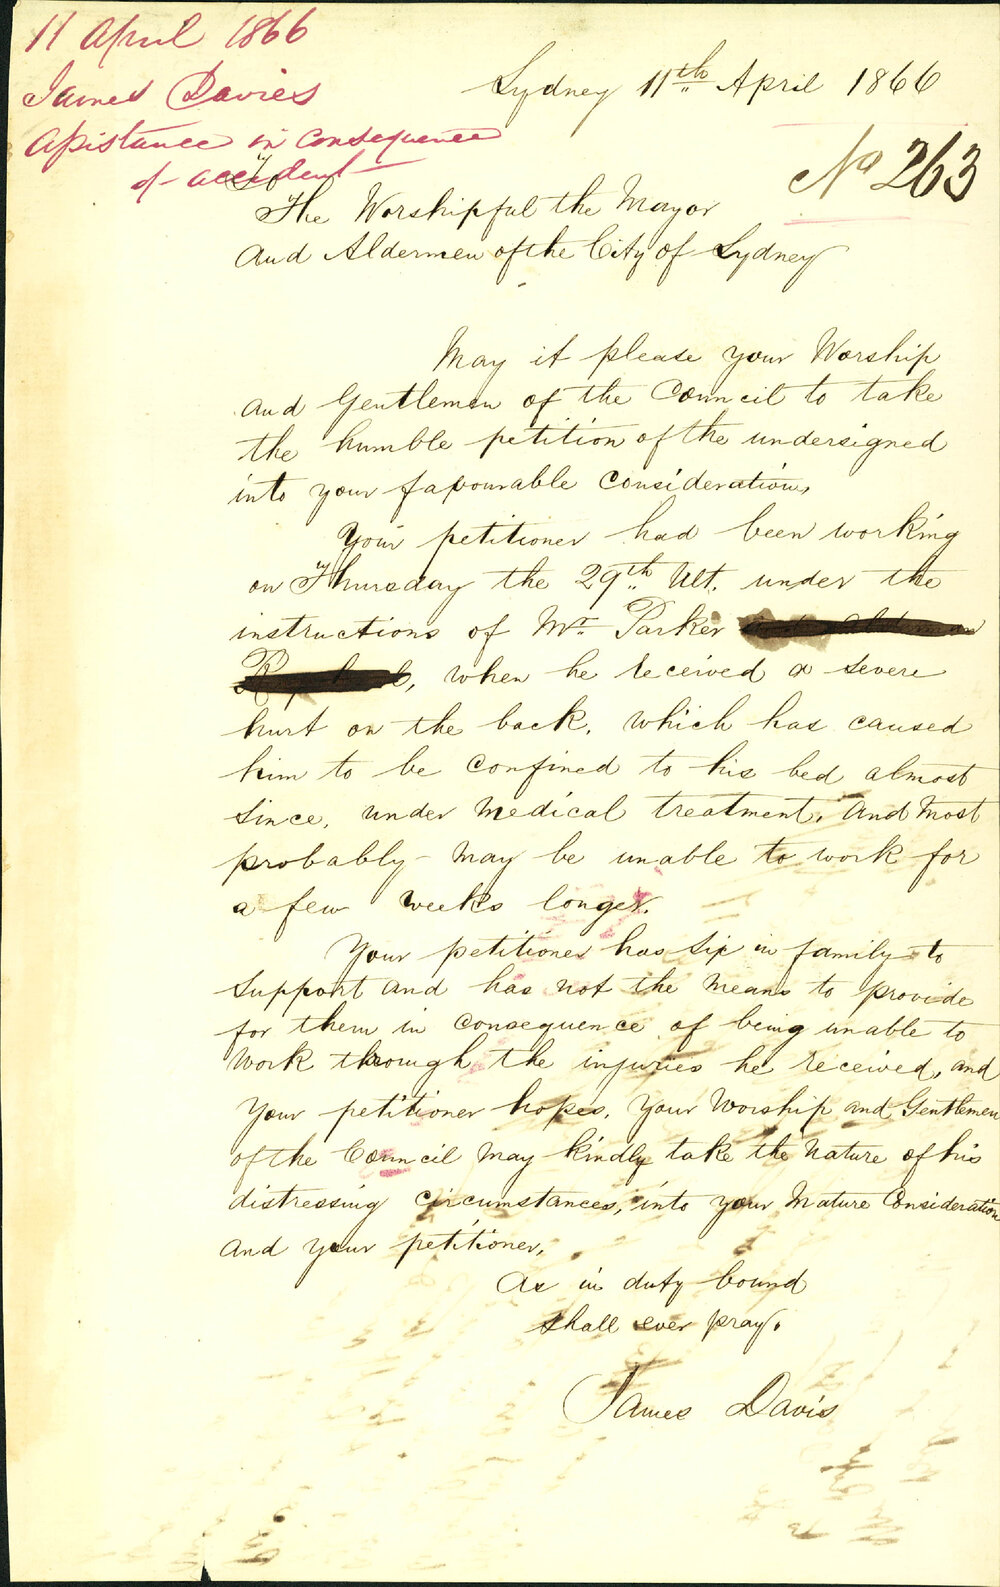 11 April 1866
James Davies
Assistance in consequence
of accident
Sydney 11th April 1866
No 263
To
The Worshipful the Mayor
and Aldermen of the City of Sydney
May it please your Worship
and Gentlemen of the Council to take
the humble petition of the undersigned
into your favourable consideration,
Your petitioner had been working
on Thursday the 29th Ult. under the
instructions of Mr. Parker
, when he received a severe
hurt on the back, which has caused
him to be confined to his bed almost
since, under medical treatment, and most
probably - may be unable to work for
a few weeks longer.
Your petitioner has six in family to
support and has not the means to provide
for them in consequence of being unable to
work through the injuries he received, and
your petitioner hopes, your Worship and Gentlemen
of the Council may kindly take the nature of his
distressing circumstances, into your mature Consideration
and your petitioner,
As in duty bound
shall ever pray.
James Davis